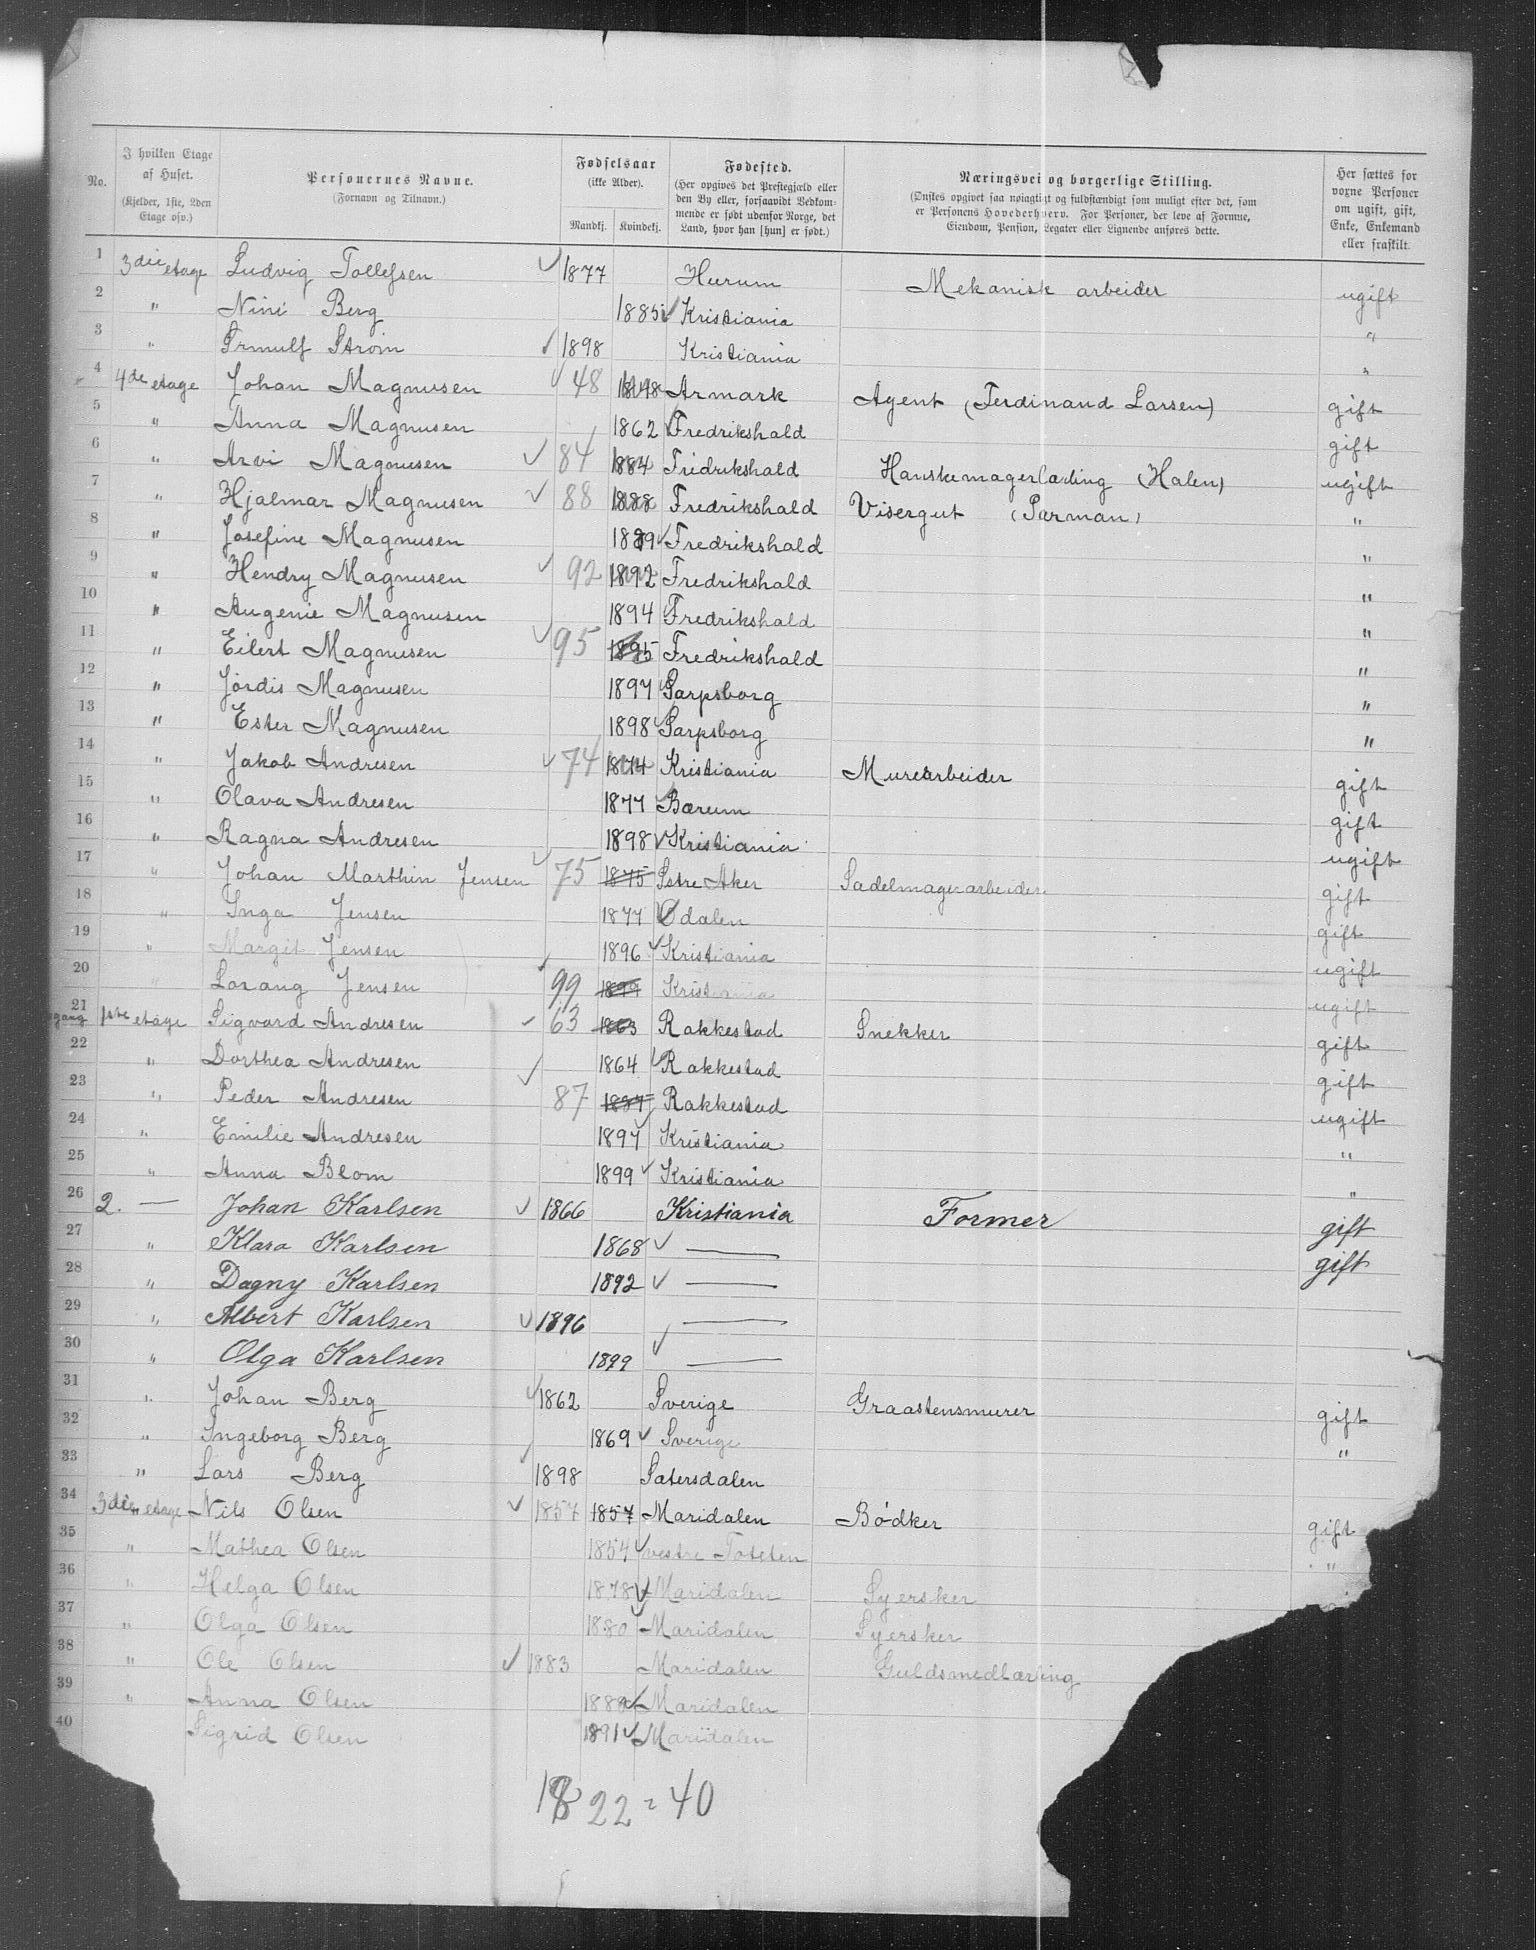 No. I hvilken Etage af Huset. (Kjelder, 1ste, 2den Etage osv.) Personernes Navne. (Fornavn og Tilnavn.) Fødselsaar (ikke Alder). Mandkj. Kvindekj. Fødested. (Her opgives det Prestegjæld eller den By eller, forsaavidt Vedkommende er født udenfor Norge, det Land, hvor han [hun] er født.) Næringsvei og borgerlige Stilling. (Ønskes opgivet saa nøiagtigt og fuldstændigt som muligt efter det, som er Personens Hovederhverv. For Personer, der leve af Formue, Eiendom, Pension, Legater eller Lignende anføres dette. Her sættes for voxne Personer om ugift, gift, Enke, Enkemand eller fraskilt.
1 3die etage Ludvig Tollefsen 1877 Hurum Mekanisk arbeider ugift
2 " Nini Berg 1885 Kristiania "
3 " Strøm 1898 Kristiania "
4 4de etage Johan Magnusen 48 1848 Armark Agent (Ferdinand Larsen) gift
5 " Anna Magnusen 1862 Fredrikshald gift
6 " Arvi Magnusen 84 1884 Fridrikshald Hanskemagerlærling (Halen) ugift
7 " Hjalmar Magnusen 88 1888 Fredrikshald Visergut (Parman) "
8 " Josefine Magnusen 1889 Fredrikshald "
9 " Hendry Magnusen 92 1892 Fredrikshald "
10 " Augenie Magnusen 1894 Fredrikshald "
11 " Eilert Magnusen 95 1895 Fredrikshald "
12 " Jördis Magnusen 1897 Sarpsborg "
13 " Ester Magnusen 1898 Sarpsborg "
14 " Jakob Andresen 74 1874 Kristiania Murerarbeider gift
15 " Olava Andresen 1877 Bærum gift
16 " Ragna Andresen 1898 Kristiania ugift
17 " Johan Marthin Jensen 75 1875 Østre Aker Sadelmagerarbeider gift
18 " Inga Jensen 1877 Ødalen gift
19 " Margit Jensen 1896 Kristiania ugift
20 " Lorang Jensen 99 1899 Kristiania ugift
21 gang 1ste etage Sigvard Andresen 63 1863 Rakkestad Snekker gift
22 " Dorthea Andresen 1864 Rakkestad gift
23 " Peder Andresen 87 1887 Rakkestad ugift
24 " Emilie Andresen 1897 Kristiania "
25 " Anna Blom 1899 Kristiania "
26 2. — Johan Karlsen 1866 Kristiania Former gift
27 " Klara Karlsen 1868 — gift
28 " Dagny Karlsen 1892 —
29 " Albert Karlsen 1896 —
30 " Olga Karlsen 1899 —
31 " Johan Berg 1862 Sverige Graastensmurer gift
32 " Ingeborg Berg 1869 Sverige "
33 " Lars Berg 1898 Sætersdalen
34 3die etage Nils Olsen 1857 1857 Maridalen Bødker gift
35 " Mathea Olsen 1854 vestre Toteten "
36 " Helga Olsen 1878 Maridalen Syersker
37 " Olga Olsen 1880 Maridalen Syersker
38 " Ole Olsen 1883 Maridalen Guldsmedlærling
39 " Anna Olsen 1888 Maridalen
40 Sigrid Olsen 1891 Maridalen
18 22 = 40